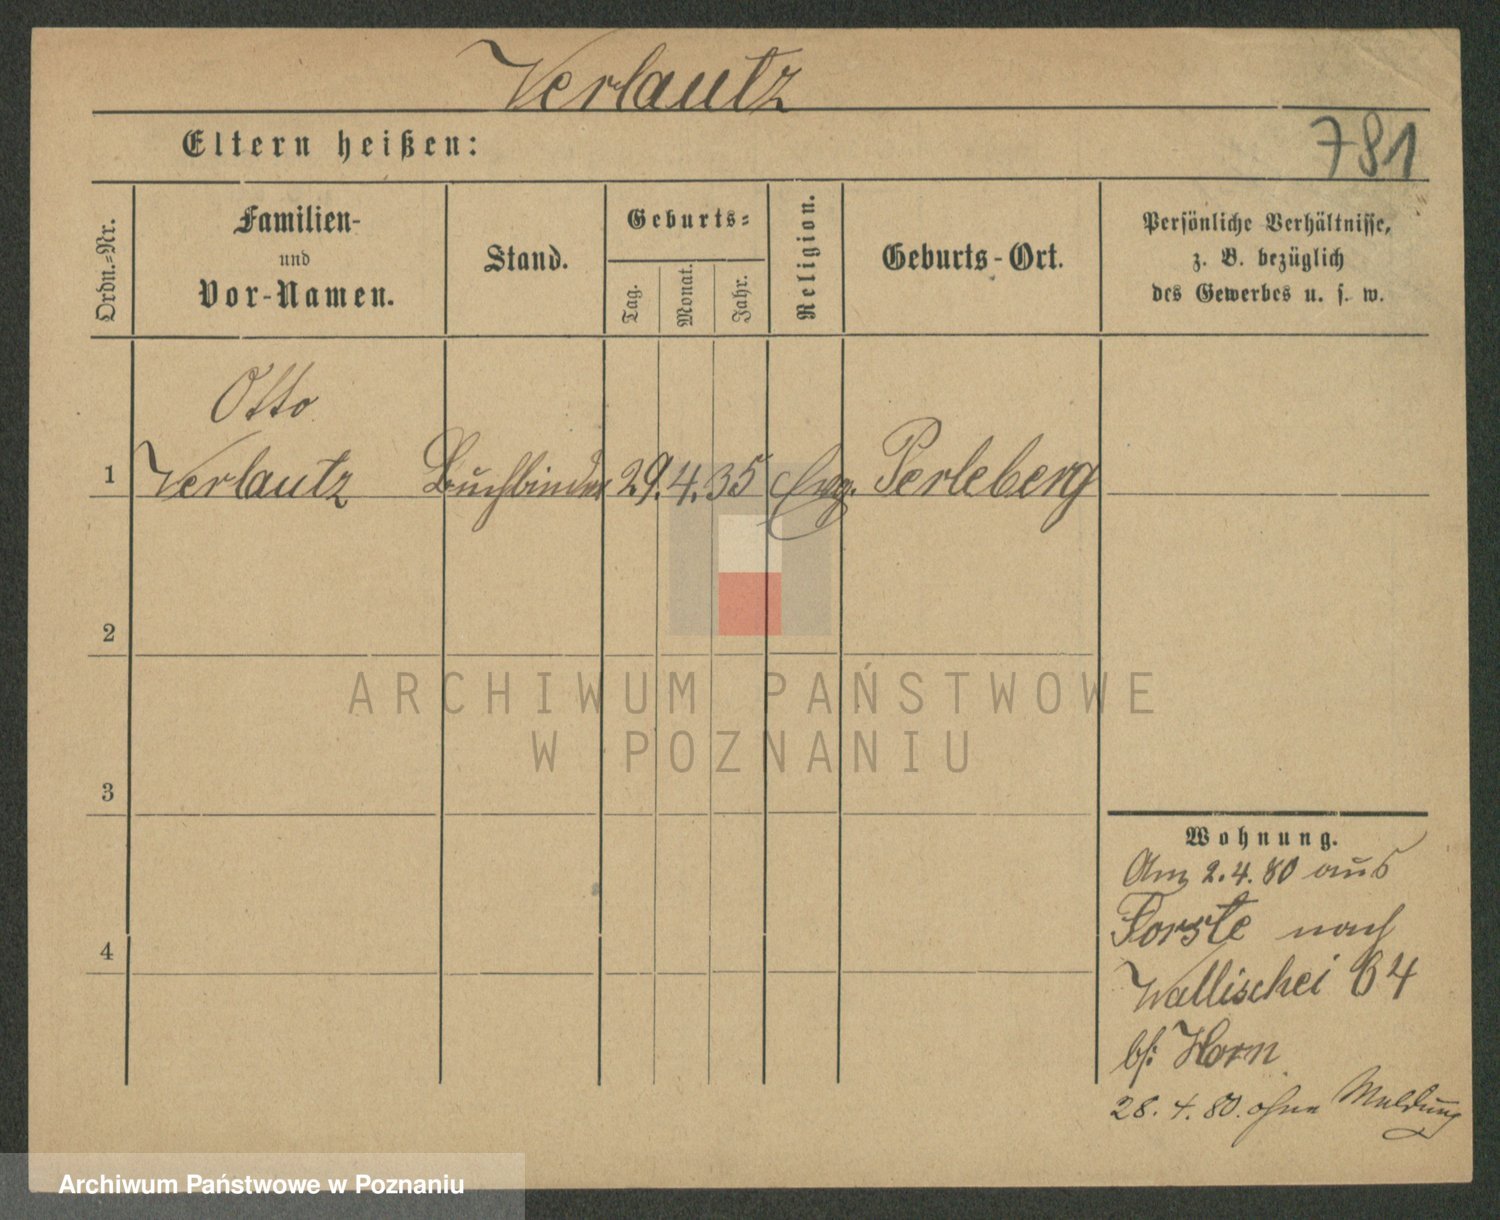 Verlautz
Eltern heißen:
781
Ordn.-Nr.
Familien-
und
Vor-Namen.
Stand.
Geburts-
Tag.
Monat.
Jahr.
Religion.
Geburts-Ort.
Persönliche Verhältnisse,
z. B. bezüglich
des Gewerbes u. s. w.
Otto
1 Verlautz Buchbinder 29. 4. 35 Evg. Perleberg
2
ARCHIWUM PAŃSTWOWE
W POZNANIU
3
Wohnung.
Am 2.4.80 aus
Forste nach
4
Wallischei 64
bf: Horn
28. 4. 80. ohne Meldung
Archiwum Państwowe w Poznaniu